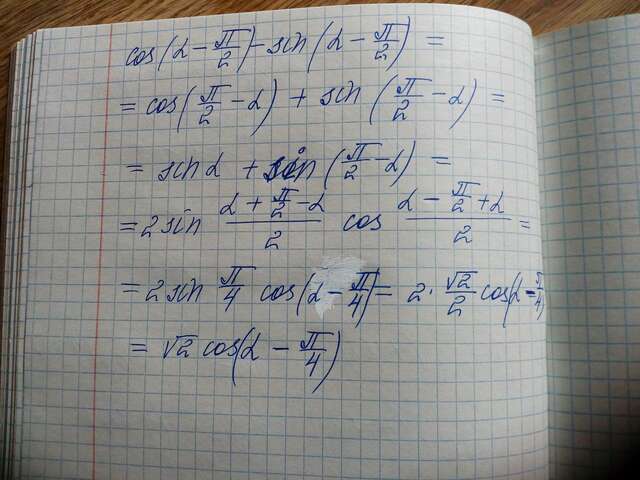 cos(α − π/2) − sin(α − π/2) =
= cos(π/2 − α) + sin(π/2 − α) =
= sin α + sin(π/2 − α) =
= 2 sin (α + π/2 − α)/2 cos (α − π/2 + α)/2 =
= 2 sin π/4 cos(α − π/4) = 2 · √2/2 cos(α − π/4)
= √2 cos(α − π/4)